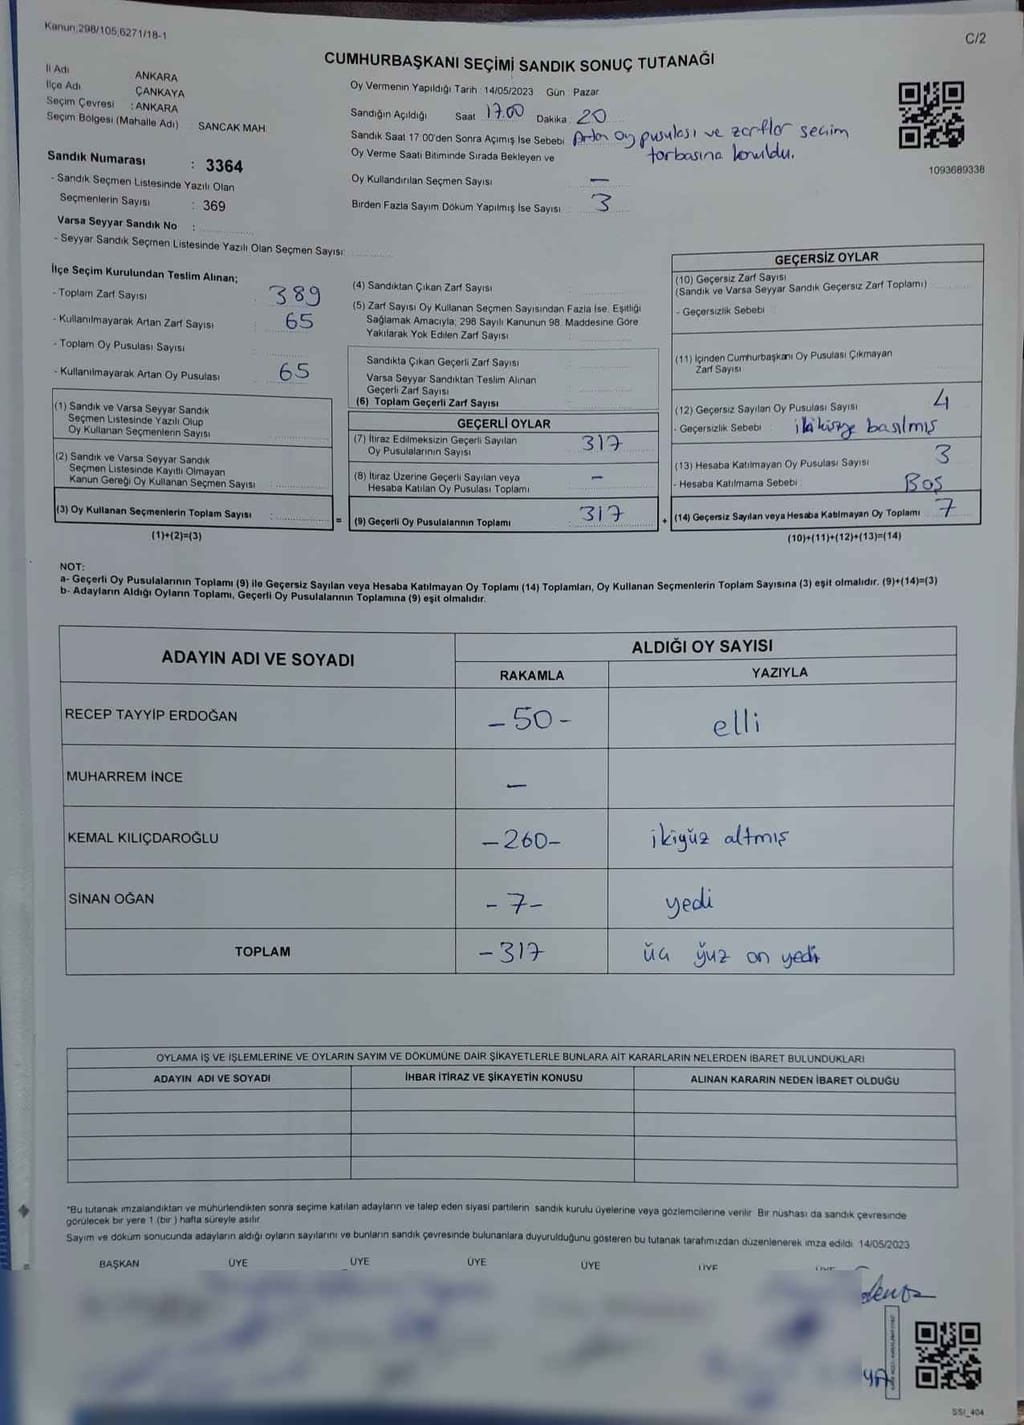 Kanun;298/105,6271/18-1
C/2
CUMHURBAŞKANI SEÇİMİ SANDIK SONUÇ TUTANAĞI
İl Adı ANKARA
İlçe Adı ÇANKAYA
Seçim Çevresi : ANKARA
Seçim Bölgesi (Mahalle Adı) SANCAK MAH.
Sandık Numarası : 3364
- Sandık Seçmen Listesinde Yazılı Olan
Seçmenlerin Sayısı : 369
Varsa Seyyar Sandık No :
- Seyyar Sandık Seçmen Listesinde Yazılı Olan Seçmen Sayısı:
Oy Vermenin Yapıldığı Tarih :14/05/2023 Gün : Pazar
Sandığın Açıldığı Saat : 17.00 Dakika : 20
Sandık Saat 17:00'den Sonra Açımış İse Sebebi Artan oy pusulası ve zarflar seçim
torbasına konuldu.
Oy Verme Saati Bitiminde Sırada Bekleyen ve
Oy Kullandırılan Seçmen Sayısı —
Birden Fazla Sayım Döküm Yapılmış İse Sayısı 3
1093689338
İlçe Seçim Kurulundan Teslim Alınan;
- Toplam Zarf Sayısı 389
- Kullanılmayarak Artan Zarf Sayısı 65
- Toplam Oy Pusulası Sayısı
- Kullanılmayarak Artan Oy Pusulası 65
(1) Sandık ve Varsa Seyyar Sandık
Seçmen Listesinde Yazılı Olup
Oy Kullanan Seçmenlerin Sayısı
(2) Sandık ve Varsa Seyyar Sandık
Seçmen Listesinde Kayıtlı Olmayan
Kanun Gereği Oy Kullanan Seçmen Sayısı
(3) Oy Kullanan Seçmenlerin Toplam Sayısı :
(1)+(2)=(3)
=
(4) Sandıktan Çıkan Zarf Sayısı
(5) Zarf Sayısı Oy Kullanan Seçmen Sayısından Fazla İse, Eşitliği
Sağlamak Amacıyla; 298 Sayılı Kanunun 98. Maddesine Göre
Yakılarak Yok Edilen Zarf Sayısı
Sandıkta Çıkan Geçerli Zarf Sayısı
Varsa Seyyar Sandıktan Teslim Alınan
Geçerli Zarf Sayısı
(6) Toplam Geçerli Zarf Sayısı
GEÇERLİ OYLAR
(7) İtiraz Edilmeksizin Geçerli Sayılan
Oy Pusulalarının Sayısı 317
(8) İtiraz Üzerine Geçerli Sayılan veya
Hesaba Katılan Oy Pusulası Toplamı —
(9) Geçerli Oy Pusulalarının Toplamı 317
+
GEÇERSİZ OYLAR
(10) Geçersiz Zarf Sayısı
(Sandık ve Varsa Seyyar Sandık Geçersiz Zarf Toplamı)
- Geçersizlik Sebebi
(11) İçinden Cumhurbaşkanı Oy Pusulası Çıkmayan
Zarf Sayısı
(12) Geçersiz Sayılan Oy Pusulası Sayısı 4
- Geçersizlik Sebebi : iki kişiye basılmış
(13) Hesaba Katılmayan Oy Pusulası Sayısı 3
- Hesaba Katılmama Sebebi : Boş
(14) Geçersiz Sayılan veya Hesaba Katılmayan Oy Toplamı 7
(10)+(11)+(12)+(13)=(14)
NOT:
a- Geçerli Oy Pusulalarının Toplamı (9) ile Geçersiz Sayılan veya Hesaba Katılmayan Oy Toplamı (14) Toplamları, Oy Kullanan Seçmenlerin Toplam Sayısına (3) eşit olmalıdır. (9)+(14)=(3)
b- Adayların Aldığı Oyların Toplamı, Geçerli Oy Pusulalarının Toplamına (9) eşit olmalıdır.
ADAYIN ADI VE SOYADI ALDIĞI OY SAYISI
RAKAMLA YAZIYLA
RECEP TAYYİP ERDOĞAN -50- elli
MUHARREM İNCE —
KEMAL KILIÇDAROĞLU -260- ikiyüz altmış
SİNAN OĞAN -7- yedi
TOPLAM -317 üç yüz on yedi
OYLAMA İŞ VE İŞLEMLERİNE VE OYLARIN SAYIM VE DÖKÜMÜNE DAİR ŞİKAYETLERLE BUNLARA AİT KARARLARIN NELERDEN İBARET BULUNDUKLARI
ADAYIN ADI VE SOYADI İHBAR İTİRAZ VE ŞİKAYETİN KONUSU ALINAN KARARIN NEDEN İBARET OLDUĞU
*Bu tutanak imzalandıktan ve mühürlendikten sonra seçime katılan adayların ve talep eden siyasi partilerin sandık kurulu üyelerine veya gözlemcilerine verilir. Bir nüshası da sandık çevresinde
görülecek bir yere 1 (bir ) hafta süreyle asılır.
Sayım ve döküm sonucunda adayların aldığı oyların sayılarını ve bunların sandık çevresinde bulunanlara duyurulduğunu gösteren bu tutanak tarafımızdan düzenlenerek imza edildi. 14/05/2023
BAŞKAN ÜYE ÜYE ÜYE ÜYE ÜYE ÜYE
SSI_404